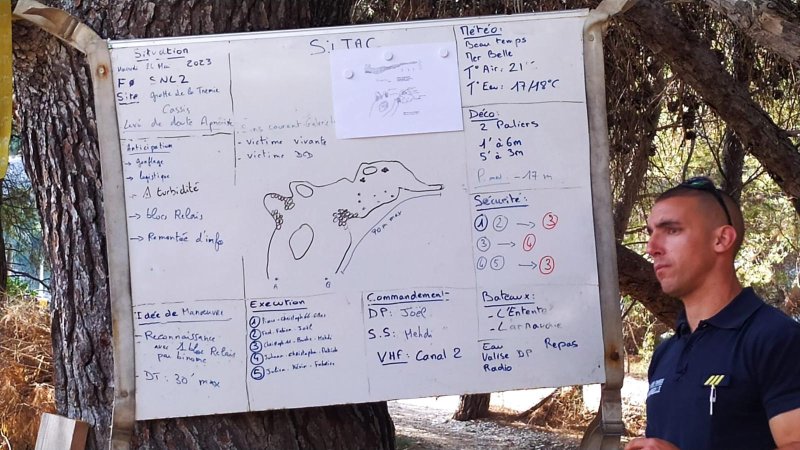 Situation
2023
F SNL2
Site grotte de la Trémie
Cassis
Levé de doute
SiTAC
- victime vivante
- victime DCD
Météo:
Beau temps
Mer Belle
T° Air: 21°
T° Eau: 17/18°C
Déco:
2 Paliers
1' à 6m
5' à 3m
- 17 m
Anticipation
→ gonflage
→ logistique
→ turbidité
→ blocs Relais
→ Remontée d'info
90m max
A B
Sécurité:
1 2 → 3
3 → 4
4 5 → 3
Idée de Manoeuvre
- Reconnaissance
avec 1 bloc Relais
par binome
- DT: 30' max
Execution
1
2 Fred - Fabien - Joël
3 Christophe - Mehdi
4 Julien - Christophe - Patrick
5 Julien - Kévin - Fabrice
Commandement
DP: Joël
S.S: Mehdi
VHF: Canal 2
Bateaux:
- L'Entente
Eau Repas
Valise DP
Radio